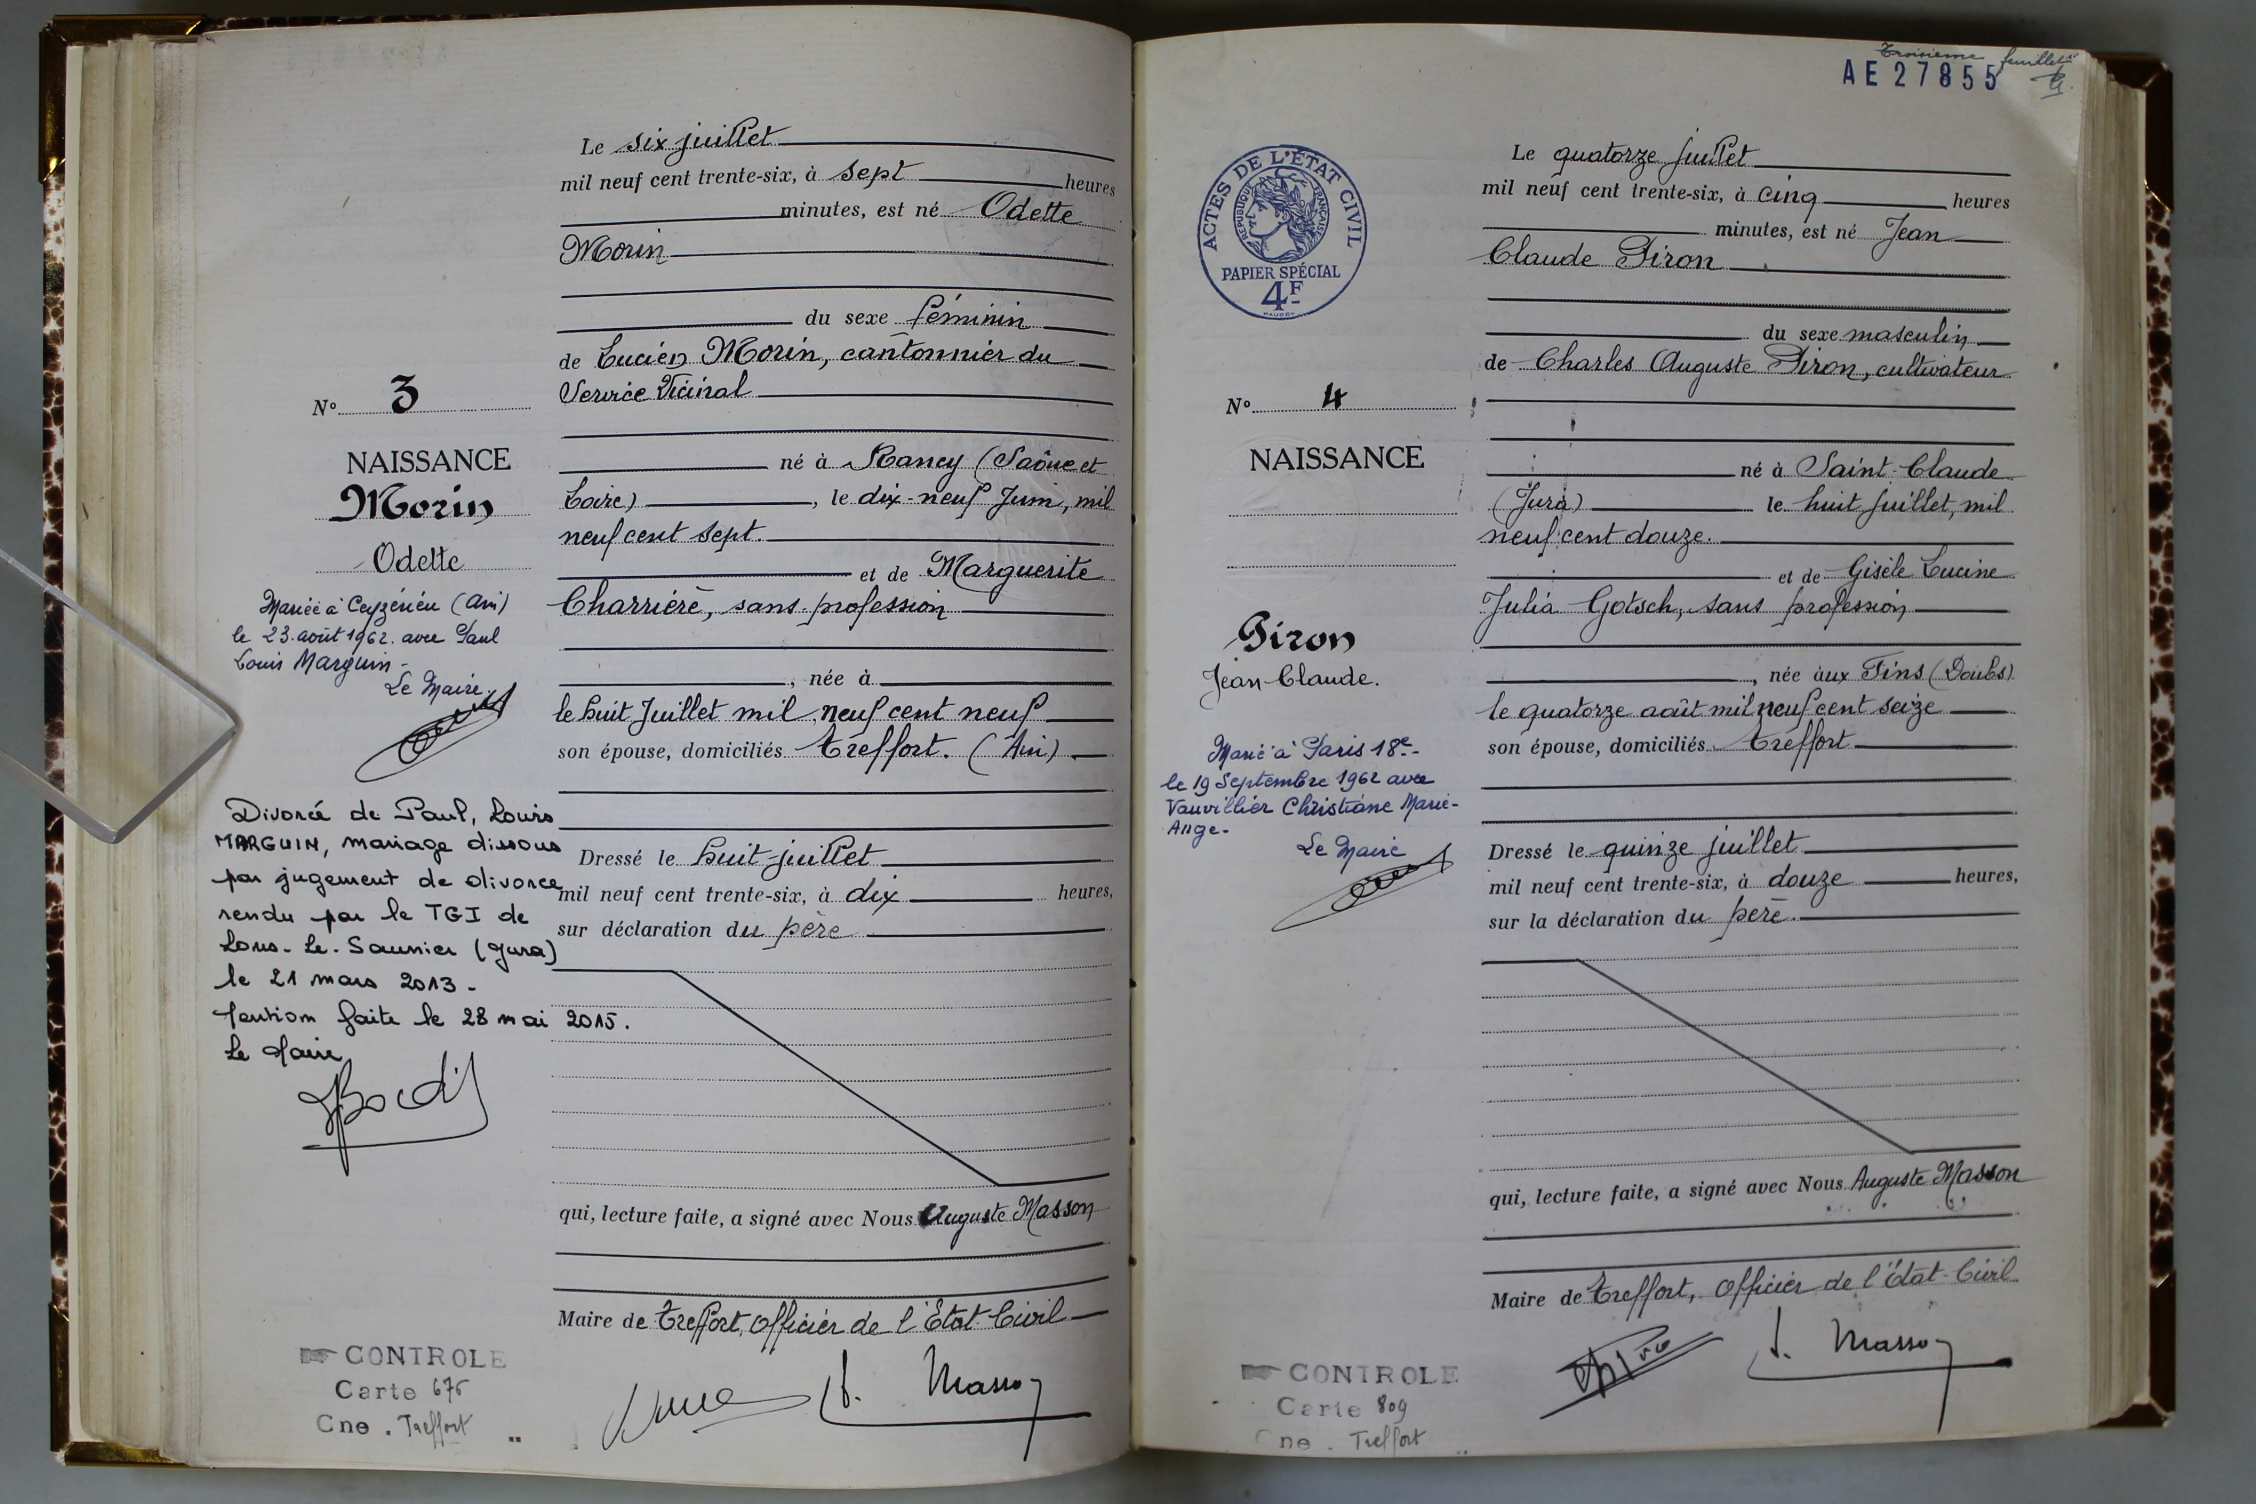 Le six juillet
mil neuf cent trente-six, à sept heures
minutes, est né Odette
Morin
du sexe féminin
de Lucien Morin, cantonnier du
Service Vicinal
N° 3
NAISSANCE
Morin
Odette
né à Rancy (Saône et
Loire), le dix-neuf Juin, mil
neuf cent sept.
et de Marguerite
Charrière, sans profession
, née à
le huit Juillet mil neuf cent neuf
son épouse, domiciliés Treffort. (Ain)
Mariée à Ceyzérieu (Ain)
le 23 août 1962 avec Paul
Louis Marguin-
Le Maire.
Divorcé de Paul, Louis
MARGUIN, mariage dissous
par jugement de divorce
rendu par le TGI de
Lons-Le-Saunier (Jura)
le 21 mars 2013-
Mention faite le 28 mai 2015.
Le Maire
Dressé le huit juillet
mil neuf cent trente-six, à dix heures,
sur déclaration du père
qui, lecture faite, a signé avec Nous Auguste Masson
Maire de Treffort, Officier de l'Etat-Civil
A. Masson
CONTROLE
Carte 676
Cne. Treffort
Troisième feuillet
AE27855
ACTES DE L'ÉTAT CIVIL
RÉPUBLIQUE FRANÇAISE
PAPIER SPÉCIAL
4F
Le quatorze juillet
mil neuf cent trente-six, à cinq heures
minutes, est né Jean
Claude Piron
du sexe masculin
de Charles Auguste Piron, cultivateur
N° 4
NAISSANCE
Piron
Jean-Claude.
né à Saint-Claude
(Jura) le huit juillet, mil
neuf cent douze.
et de Gisèle Lucine
Julia Gotsch, sans profession
, née aux Fins (Doubs)
le quatorze août mil neuf cent seize
son épouse, domiciliés Treffort
Marié à Paris 18e-
le 19 Septembre 1962 avec
Vauvillier Christiane Marie-
Ange-
Le Maire
Dressé le quinze juillet
mil neuf cent trente-six, à douze heures,
sur la déclaration du père.
qui, lecture faite, a signé avec Nous Auguste Masson
Maire de Treffort, Officier de l'Etat-Civil
A. Masson
CONTROLE
Carte 809
Cne. Treffort